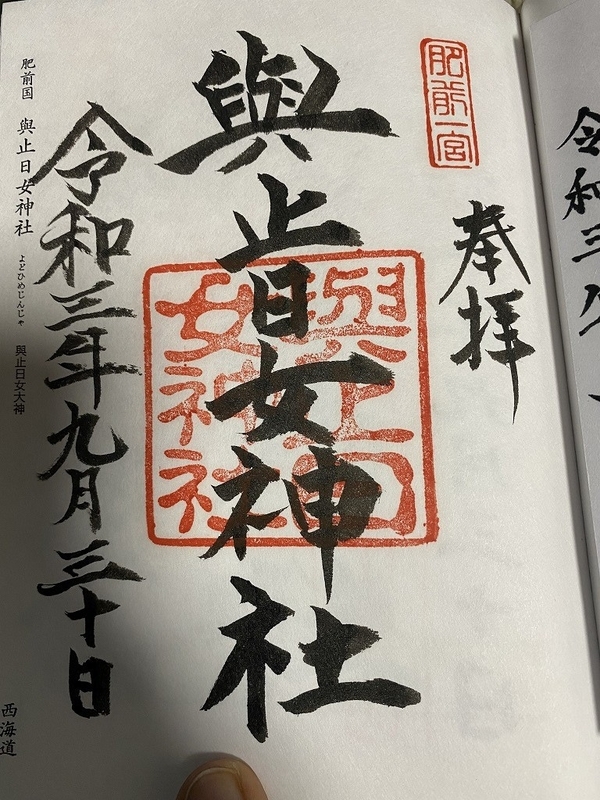 肥前一宮
奉拝
與止日女神社
與止日
女神社
令和三年九月三十日
肥前国 與止日女神社 よどひめじんじゃ 與止日女大神
西海道
令和三年